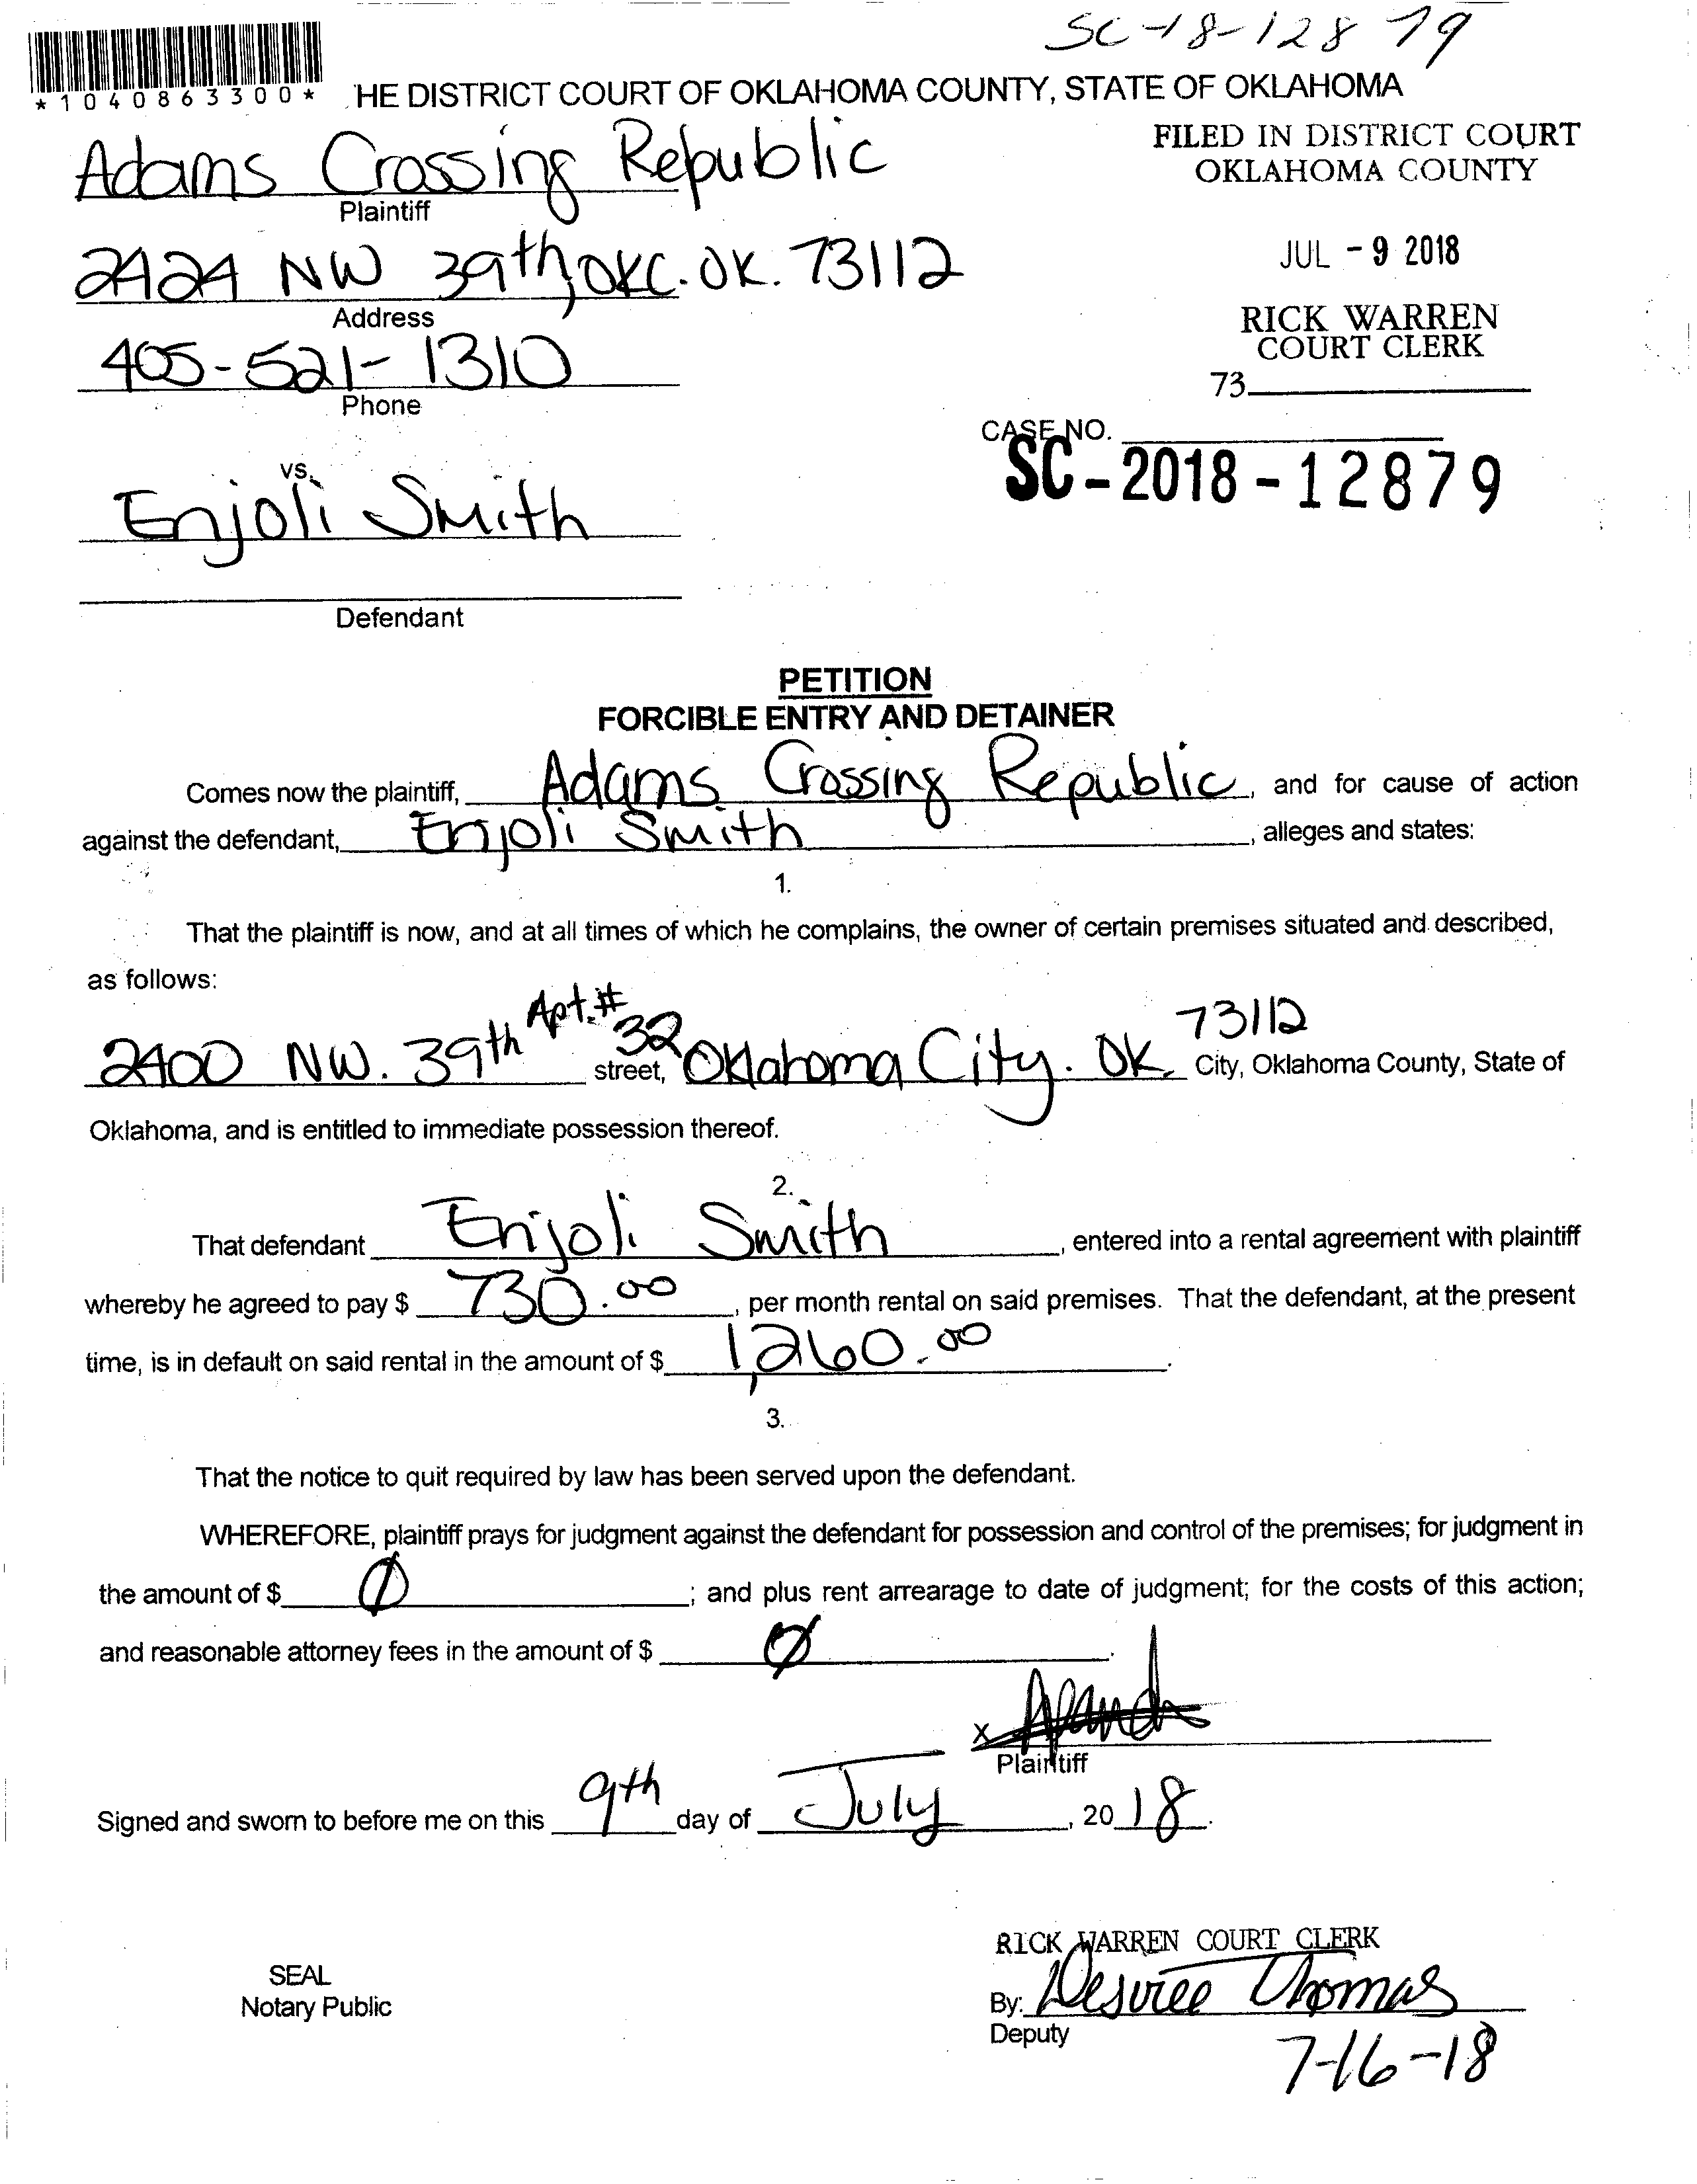 SC-18-12879
*1040863300*
HE DISTRICT COURT OF OKLAHOMA COUNTY, STATE OF OKLAHOMA
Adams Crossing Republic
Plaintiff
FILED IN DISTRICT COURT
OKLAHOMA COUNTY
2424 NW 39th, OKC. OK. 73112
Address
JUL - 9 2018
405-521-1310
Phone
RICK WARREN
COURT CLERK
73
CASE NO.
SC - 2018 - 12879
vs.
Enjoli Smith
Defendant
PETITION
FORCIBLE ENTRY AND DETAINER
Comes now the plaintiff, Adams Crossing Republic, and for cause of action
against the defendant, Enjoli Smith, alleges and states:
1.
That the plaintiff is now, and at all times of which he complains, the owner of certain premises situated and described,
as follows:
2400 NW. 39th Apt.# 32 street, Oklahoma City. OK, 73112 City, Oklahoma County, State of
Oklahoma, and is entitled to immediate possession thereof.
2.
That defendant Enjoli Smith, entered into a rental agreement with plaintiff
whereby he agreed to pay $ 730.00, per month rental on said premises. That the defendant, at the present
time, is in default on said rental in the amount of $ 1,260.00.
3.
That the notice to quit required by law has been served upon the defendant.
WHEREFORE, plaintiff prays for judgment against the defendant for possession and control of the premises; for judgment in
the amount of $ Ø; and plus rent arrearage to date of judgment; for the costs of this action;
and reasonable attorney fees in the amount of $ Ø.
X
Plaintiff
Signed and sworn to before me on this 9th day of July, 2018.
RICK WARREN COURT CLERK
SEAL
Notary Public
By: Desiree Thomas
Deputy
7-16-18